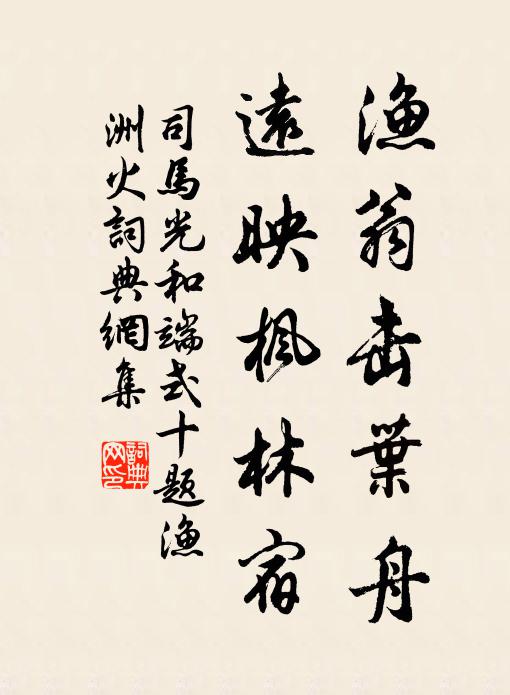 漁翁击葉舟
遠映楓林宿
司馬光和端式十題漁
洲火詞典網集
詞典
网印